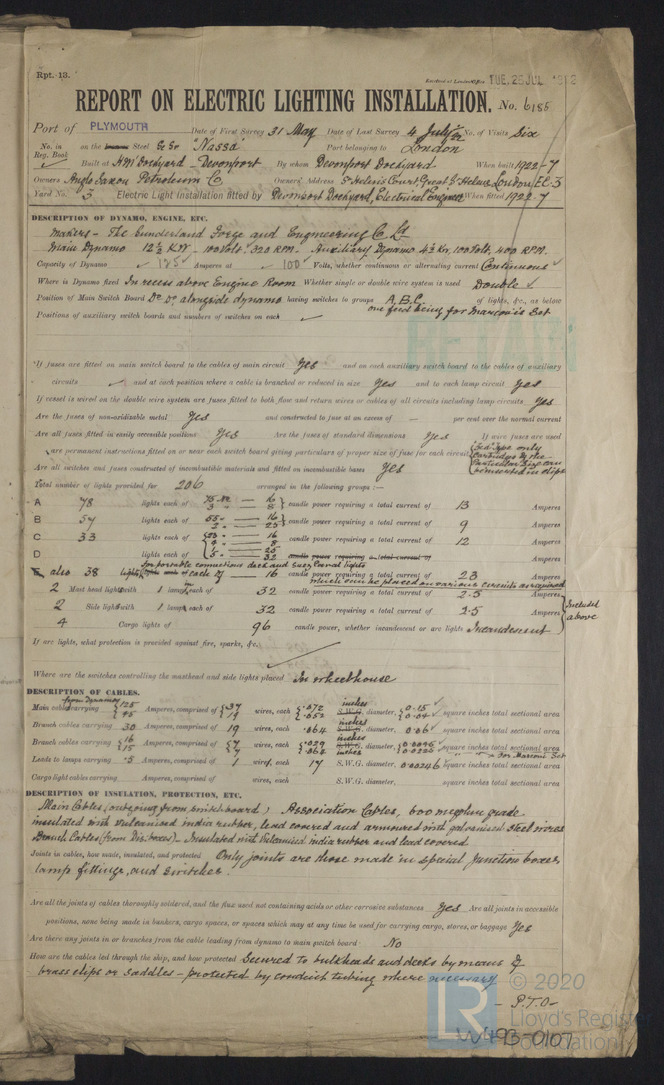 Rpt. 13.
Received at London Office TUE. 25 JUL 1922
REPORT ON ELECTRIC LIGHTING INSTALLATION. No. 6185
Port of PLYMOUTH Date of First Survey 31 May Date of Last Survey 4 July 22 No. of Visits Six
No. in Reg. Book on the Steel Sc Sr "Nassa" Port belonging to London
Built at H.M. Dockyard - Devonport By whom Devonport Dockyard When built 1922-7
Owners Anglo Saxon Petroleum Co Owners' Address St Helens Court, Great St Helens, London, EC.3
Yard No. 3 Electric Light Installation fitted by Devonport Dockyard, Electrical Engineer When fitted 1922-7
DESCRIPTION OF DYNAMO, ENGINE, ETC.
Makers - The Sunderland Forge and Engineering Co. Ld
Main Dynamo 12½ KW. 100 Volt. 320 RPM. Auxiliary Dynamo 4½ Kw, 100 Volt, 400 RPM.
Capacity of Dynamo 125 Amperes at 100 Volts, whether continuous or alternating current Continuous
Where is Dynamo fixed In recess above Engine Room Whether single or double wire system is used Double
Position of Main Switch Board Do Do alongside dynamo having switches to groups A, B, C of lights, &c., as below
one feed being for Marconi's Set
Positions of auxiliary switch boards and numbers of switches on each
RETAIN
If fuses are fitted on main switch board to the cables of main circuit Yes and on each auxiliary switch board to the cables of auxiliary
circuits and at each position where a cable is branched or reduced in size Yes and to each lamp circuit Yes
If vessel is wired on the double wire system are fuses fitted to both flow and return wires or cables of all circuits including lamp circuits Yes
Are the fuses of non-oxidizable metal Yes and constructed to fuse at an excess of — per cent over the normal current
Are all fuses fitted in easily accessible positions Yes Are the fuses of standard dimensions Yes If wire fuses are used
are permanent instructions fitted on or near each switch board giving particulars of proper size of fuse for each circuit
Are all switches and fuses constructed of incombustible materials and fitted on incombustible bases Yes
Total number of lights provided for 206 arranged in the following groups :—
A 78 lights each of 16 8 candle power requiring a total current of 13 Amperes
B 57 lights each of 55 - 16 2 - 25 candle power requiring a total current of 9 Amperes
C 33 lights each of 16 8 candle power requiring a total current of 12 Amperes
D lights each of 5 - 32 candle power requiring a total current of Amperes
for portable connections deck and Suez Canal lights
also 38 lights each of 16 candle power requiring a total current of 23 Amperes
which can be placed on various circuits as required
2 Mast head lights with 1 lamp in each of 32 candle power requiring a total current of 2.5 Amperes
2 Side lights with 1 lamp in each of 32 candle power requiring a total current of 2.5 Amperes
Included above
4 Cargo lights of 96 candle power, whether incandescent or arc lights Incandescent
If arc lights, what protection is provided against fire, sparks, &c.
Where are the switches controlling the masthead and side lights placed In wheelhouse
DESCRIPTION OF CABLES.
from Dynamos
Main cables carrying 125 45 Amperes, comprised of 37 19 wires, each .072 .052 S.W.G. inches diameter, 0.15 0.04 square inches total sectional area
Branch cables carrying 30 Amperes, comprised of 19 wires, each .064 S.W.G. inches diameter, 0.06 square inches total sectional area
Branch cables carrying 16 15 Amperes, comprised of 7 7 wires, each .029 S.W.G. inches diameter, square inches total sectional area
for Marconi Set
Leads to lamps carrying .5 Amperes, comprised of 1 wires, each 17 S.W.G. diameter, 0.00246 square inches total sectional area
Cargo light cables carrying Amperes, comprised of wires, each S.W.G. diameter, square inches total sectional area
DESCRIPTION OF INSULATION, PROTECTION, ETC.
Main Cables, (outgoing from switchboard) Association Cables, 600 megohm grade
insulated with vulcanised india rubber, lead covered and armoured with galvanised steel wires
Branch Cables (from Dis: boxes) - Insulated with Vulcanised india rubber and lead covered.
Joints in cables, how made, insulated, and protected Only joints are those made in special junction boxes,
lamp fittings, and switches.
Are all the joints of cables thoroughly soldered, and the flux used not containing acids or other corrosive substances Yes Are all joints in accessible
positions, none being made in bunkers, cargo spaces, or spaces which may at any time be used for carrying cargo, stores, or baggage Yes
Are there any joints in or branches from the cable leading from dynamo to main switch board No
How are the cables led through the ship, and how protected Secured to bulkheads and decks by means of
brass clips or saddles - protected by conduit tubing where necessary
- P.T.O -
LR © 2020
Lloyd's Register
Foundation
W493-0107